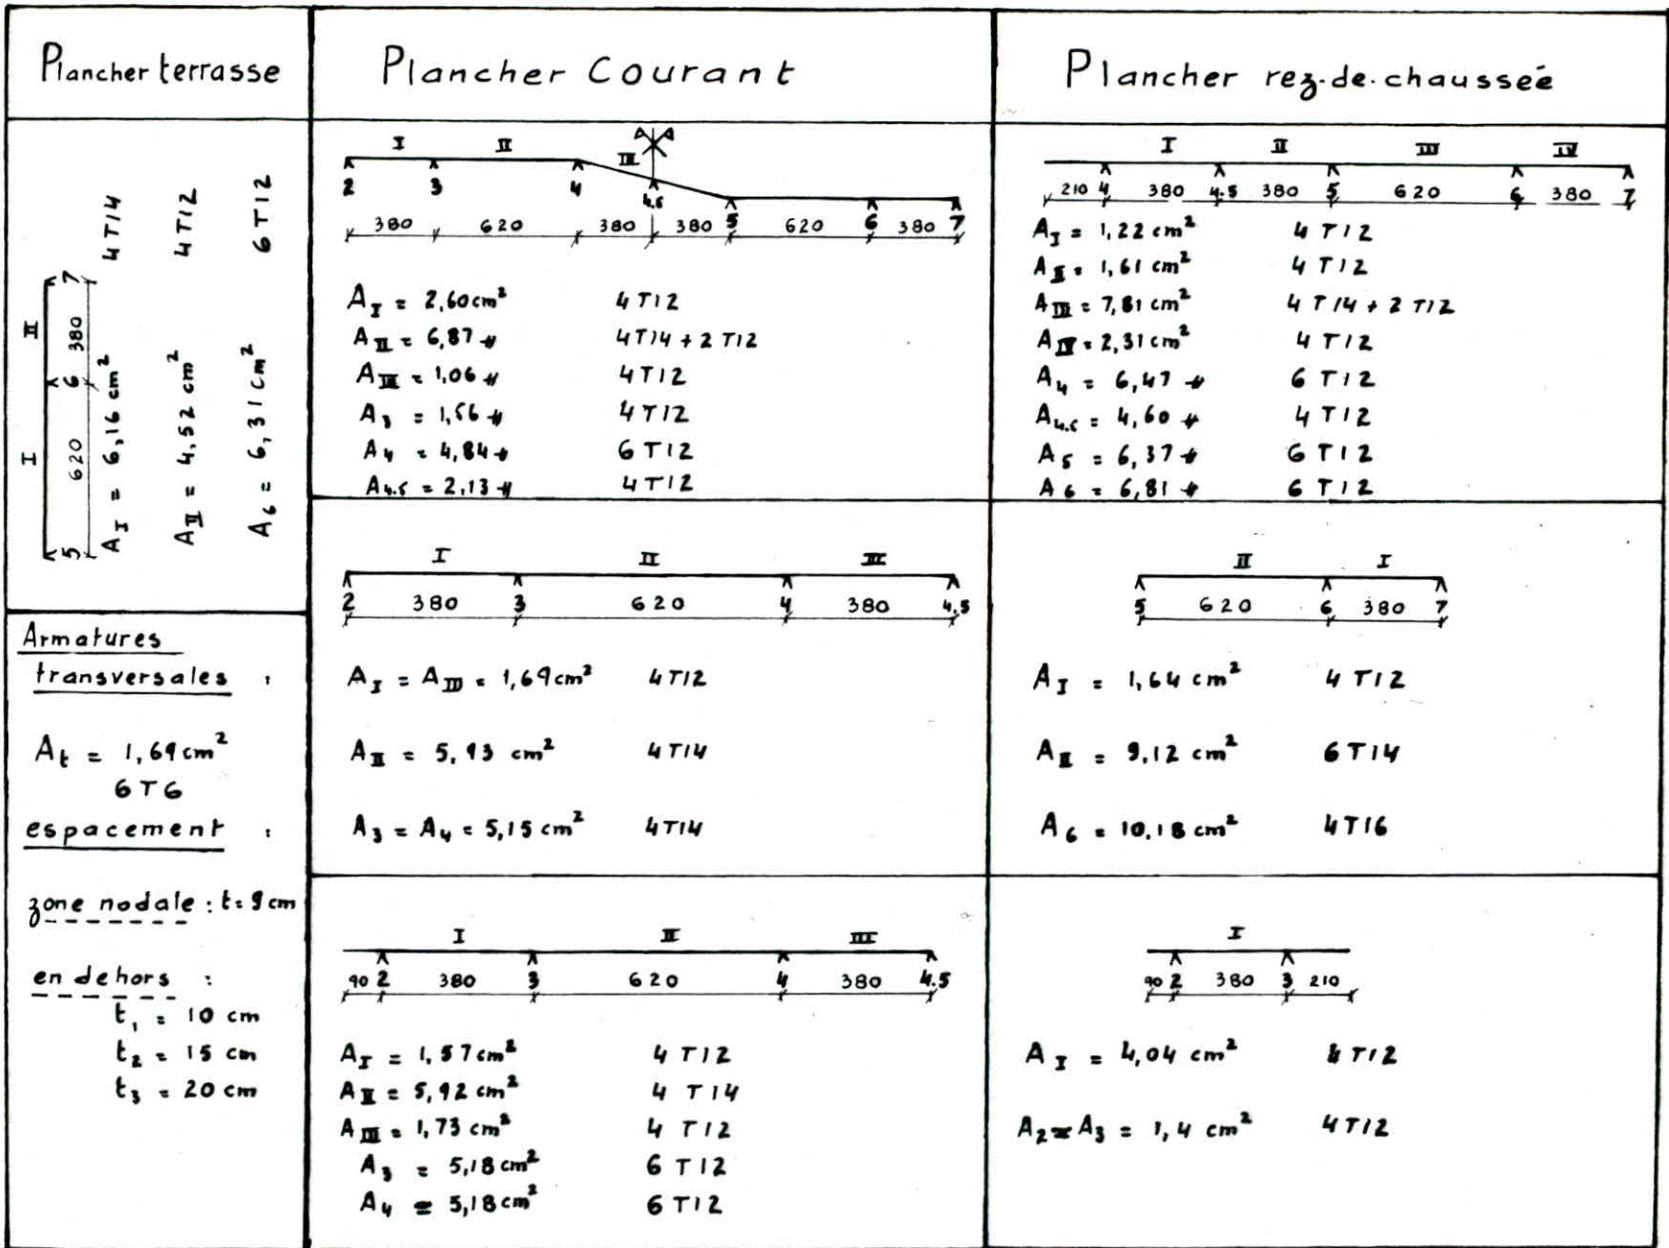 Plancher terrasse
I II
5 6 7
620 380
A I = 6,16 cm² 4T14
A II = 4,52 cm² 4T12
A6 = 6,31 cm² 6T12
Armatures
transversales :
At = 1,69 cm²
6T6
espacement :
zone nodale : t= 9 cm
en dehors :
t1 = 10 cm
t2 = 15 cm
t3 = 20 cm
Plancher Courant
I II III
2 3 4 4.5 5 6 7
380 620 380 380 620 380
A I = 2,60 cm² 4T12
A II = 6,87 〃 4T14 + 2T12
A III = 1,06 〃 4T12
A3 = 1,56 〃 4T12
A4 = 4,84 〃 6T12
A4.5 = 2,13 〃 4T12
I II III
2 380 3 620 4 380 4.5
A I = A III = 1,69 cm² 4T12
A II = 5,93 cm² 4T14
A3 = A4 = 5,15 cm² 4T14
I II III
90 2 380 3 620 4 380 4.5
A I = 1,57 cm² 4T12
A II = 5,92 cm² 4T14
A III = 1,73 cm² 4T12
A3 = 5,18 cm² 6T12
A4 = 5,18 cm² 6T12
Plancher rez.de.chaussée
I II III IV
210 4 380 4.5 380 5 620 6 380 7
A I = 1,22 cm² 4T12
A II = 1,61 cm² 4T12
A III = 7,81 cm² 4T14 + 2T12
A IV = 2,31 cm² 4T12
A4 = 6,47 〃 6T12
A4.5 = 4,60 〃 4T12
A5 = 6,37 〃 6T12
A6 = 6,81 〃 6T12
II I
5 620 6 380 7
A I = 1,64 cm² 4T12
A II = 9,12 cm² 6T14
A6 = 10,18 cm² 4T16
I
90 2 380 3 210
A I = 4,04 cm² 4T12
A2 = A3 = 1,4 cm² 4T12